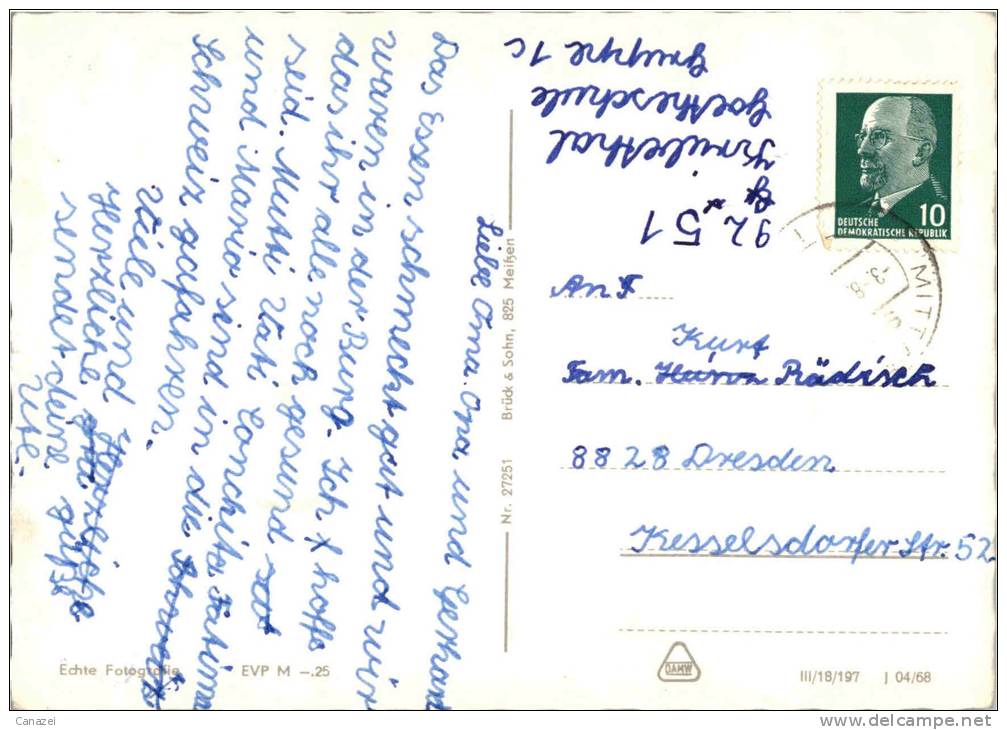 Liebe Oma. Opa und Gerhard
Das Essen schmeckt gut und wir
waren in der Burg. Ich hoffe
das ihr alle noch gesund
seid. Mutti Vati Conchita, Fatima
und Mario sind in die
Schweiz gefahren.
Viele und
Herzliche
sendet deine
Ute.
92 51
Goetheschule
Gruppe 1c
DEUTSCHE
DEMOKRATISCHE REPUBLIK
10
MITT
-3.-8.
An
Kurt
Fam. Rädisch
8828 Dresden
Kesselsdorfer Str. 52
Nr. 27251 Brück & Sohn, 825 Meißen
Echte Fotografie EVP M –.25
DAMW
III/18/197 J 04/68
Canazei
delcampe.net